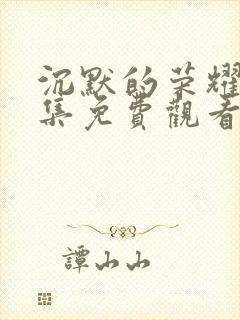 沉默的荣耀
集免費觀看
譚山山